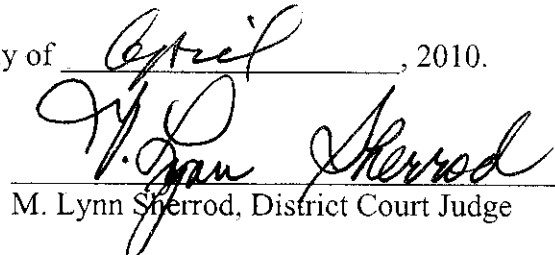 y of April, 2010.
M. Lynn Sherrod
M. Lynn Sherrod, District Court Judge